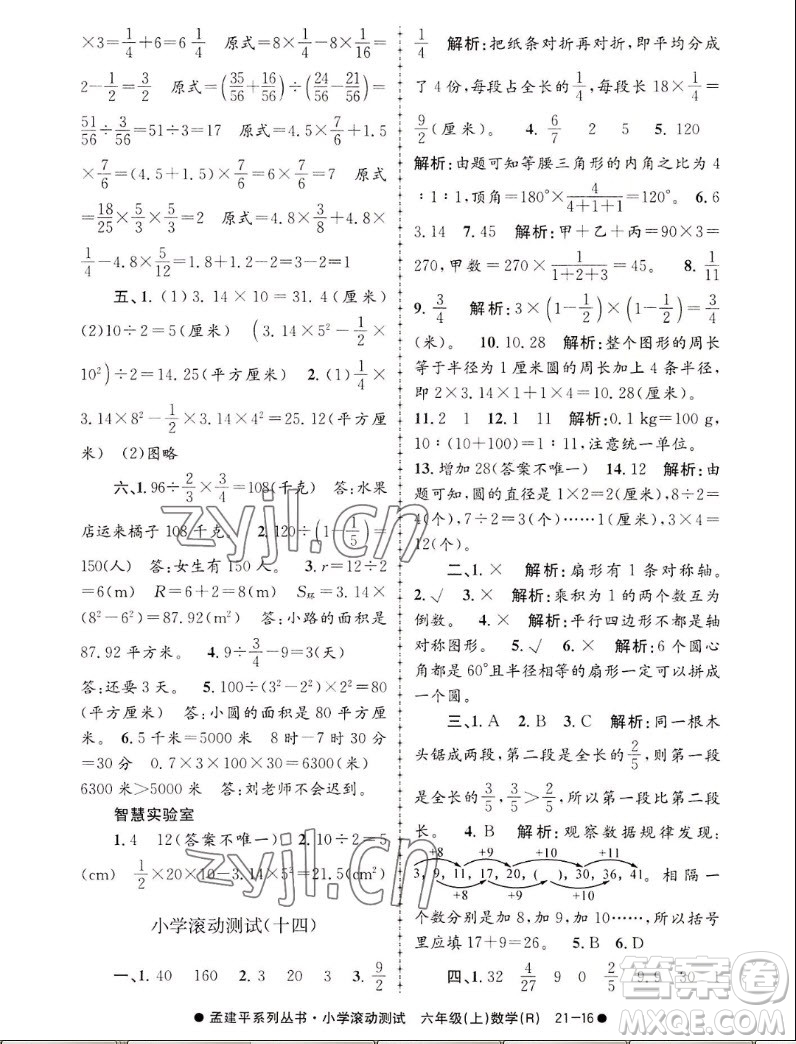 ×3=1/4+6=6 1/4 原式=8×1/4-8×1/16=
2-1/2=3/2 原式=(35/56+16/56)÷(24/56-21/56)=
51/56÷3/56=51÷3=17 原式=4.5×7/6+1.5
×7/6=(4.5+1.5)×7/6=6×7/6=7 原式=
18/25×5/3×5/3=2 原式=4.8×3/8+4.8×
1/4-4.8×5/12=1.8+1.2-2=3-2=1
五、1.(1)3.14×10=31.4(厘米)
(2)10÷2=5(厘米) (3.14×5²-1/2×
10²)÷2=14.25(平方厘米) 2.(1)1/4×
3.14×8²-1/2×3.14×4²=25.12(平方厘
米) (2)图略
六、1.96÷2/3×3/4=108(千克) 答:水果
店运来橘子108千克。 2.120÷(1-1/5)=
150(人) 答:女生有150人。 3.r=12÷2
=6(m) R=6+2=8(m) S环=3.14×
(8²-6²)=87.92(m²) 答:小路的面积是
87.92平方米。 4.9÷3/4-9=3(天)
答:还要3天。 5.100÷(3²-2²)×2²=80
(平方厘米) 答:小圆的面积是80平方厘
米。 6.5千米=5000米 8时-7时30分
=30分 0.7×3×100×30=6300(米)
6300米>5000米 答:刘老师不会迟到。
智慧实验室
1.4 12(答案不唯一) 2.10÷2=5
(cm) 1/2×20×10-3.14×5²=21.5(cm²)
小学滚动测试(十四)
一、1.40 160 2.3 20 3 3.9/2
1/4 解析:把纸条对折再对折,即平均分成
了4份,每段占全长的1/4,每段长18×1/4=
9/2(厘米)。 4.6/7 2 5 5.120
解析:由题可知等腰三角形的内角之比为4
∶1∶1,顶角=180°×4/(4+1+1)=120°。 6.6
3.14 7.45 解析:甲+乙+丙=90×3=
270,甲数=270×1/(1+2+3)=45。 8.1/11
9.3/4 解析:3×(1-1/2)×(1-1/2)=3/4
(米)。 10.10.28 解析:整个图形的周长
等于半径为1厘米圆的周长加上4条半径,
即2×3.14×1+1×4=10.28(厘米)。
11.2 1 12.1 11 解析:0.1 kg=100 g,
10∶(10+100)=1∶11,注意统一单位。
13.增加28(答案不唯一) 14.12 解析:由
题可知,圆的直径是1×2=2(厘米),8÷2=
4(个),7÷2=3(个)……1(厘米),3×4=
12(个)。
二、1.× 解析:扇形有1条对称轴。
2.√ 3.× 解析:乘积为1的两个数互为
倒数。 4.× 解析:平行四边形不都是轴
对称图形。 5.√ 6.× 解析:6个圆心
角都是60°且半径相等的扇形一定可以拼成
一个圆。
三、1.A 2.B 3.C 解析:同一根木
头锯成两段,第二段是全长的2/5,第一段是
全长的3/5,3/5>2/5,所以第一段比第二段
长。 4.B 解析:观察数据规律发现:
+8 +9 +10 +11
3,9,11,17,20,( ),30,36,41。相隔一
+8 +9 +10
个数分别是加8、9、10、11的规律,所以括号
里应填17+9=26。 5.B 6.D
四、1.32 4/27 9 0 2/5 9.9 30 1
●孟建平系列丛书·小学滚动测试 六年级(上)数学(R) 21-16●
zyjl.cn
zyjl.cn
答案卷